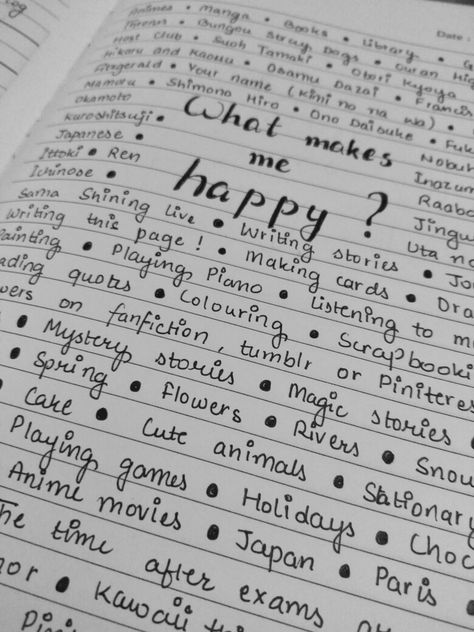 Animes • Manga • Books • Library •
Date:
Bungou Stray Dogs • Ouran Hi
Host Club • Suoh Tamaki • Otori Kyoya
Hikaru and Kaoru • Osamu Dazai • Francis
Fitzgerald • Your name (Kimi no na wa) •
Mamoru • Shimono Hiro • Ono Daisuke • Fuk
Okamoto
Nobun
Kuroshitsuji •
What makes
Inazum
Japanese •
me
Raab
Ittoki • Ren
happy?
Jingu
Ichinose •
Uta no
Sama Shining Live • Writing stories • Jo
Writing this page! • Making cards • Dra
Painting • Playing Piano • Listening to m
ading quotes • Colouring • Scrapbooki
wers on fanfiction, tumblr or Pinteres
• Mystery stories • Magic stories •
• Spring • Flowers • Rivers • Snow
• Cake • Cute animals • Stationary
Playing games • Holidays • Choc
Anime movies • Japan • Paris •
The time after exams
• Kawaii